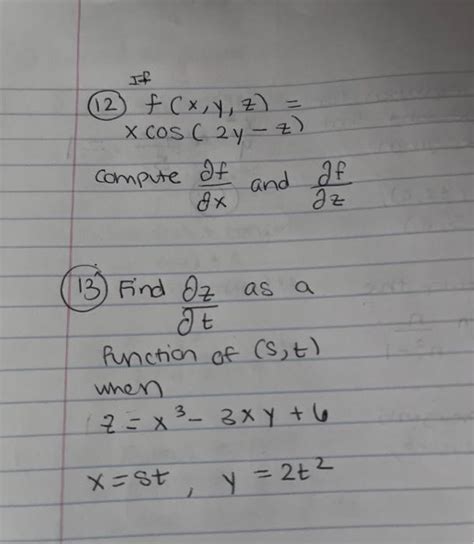 If
12 f(x,y,z) =
x cos(2y-z)
compute ∂f/∂x and ∂f/∂z
13 Find ∂z/∂t as a
function of (s,t)
when
z = x³ - 3xy + 6
x = st, y = 2t²